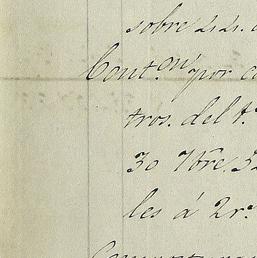 sobre 22.
Cont.on por co
tros. del t.
30 7bre 32
les á 2 r.s